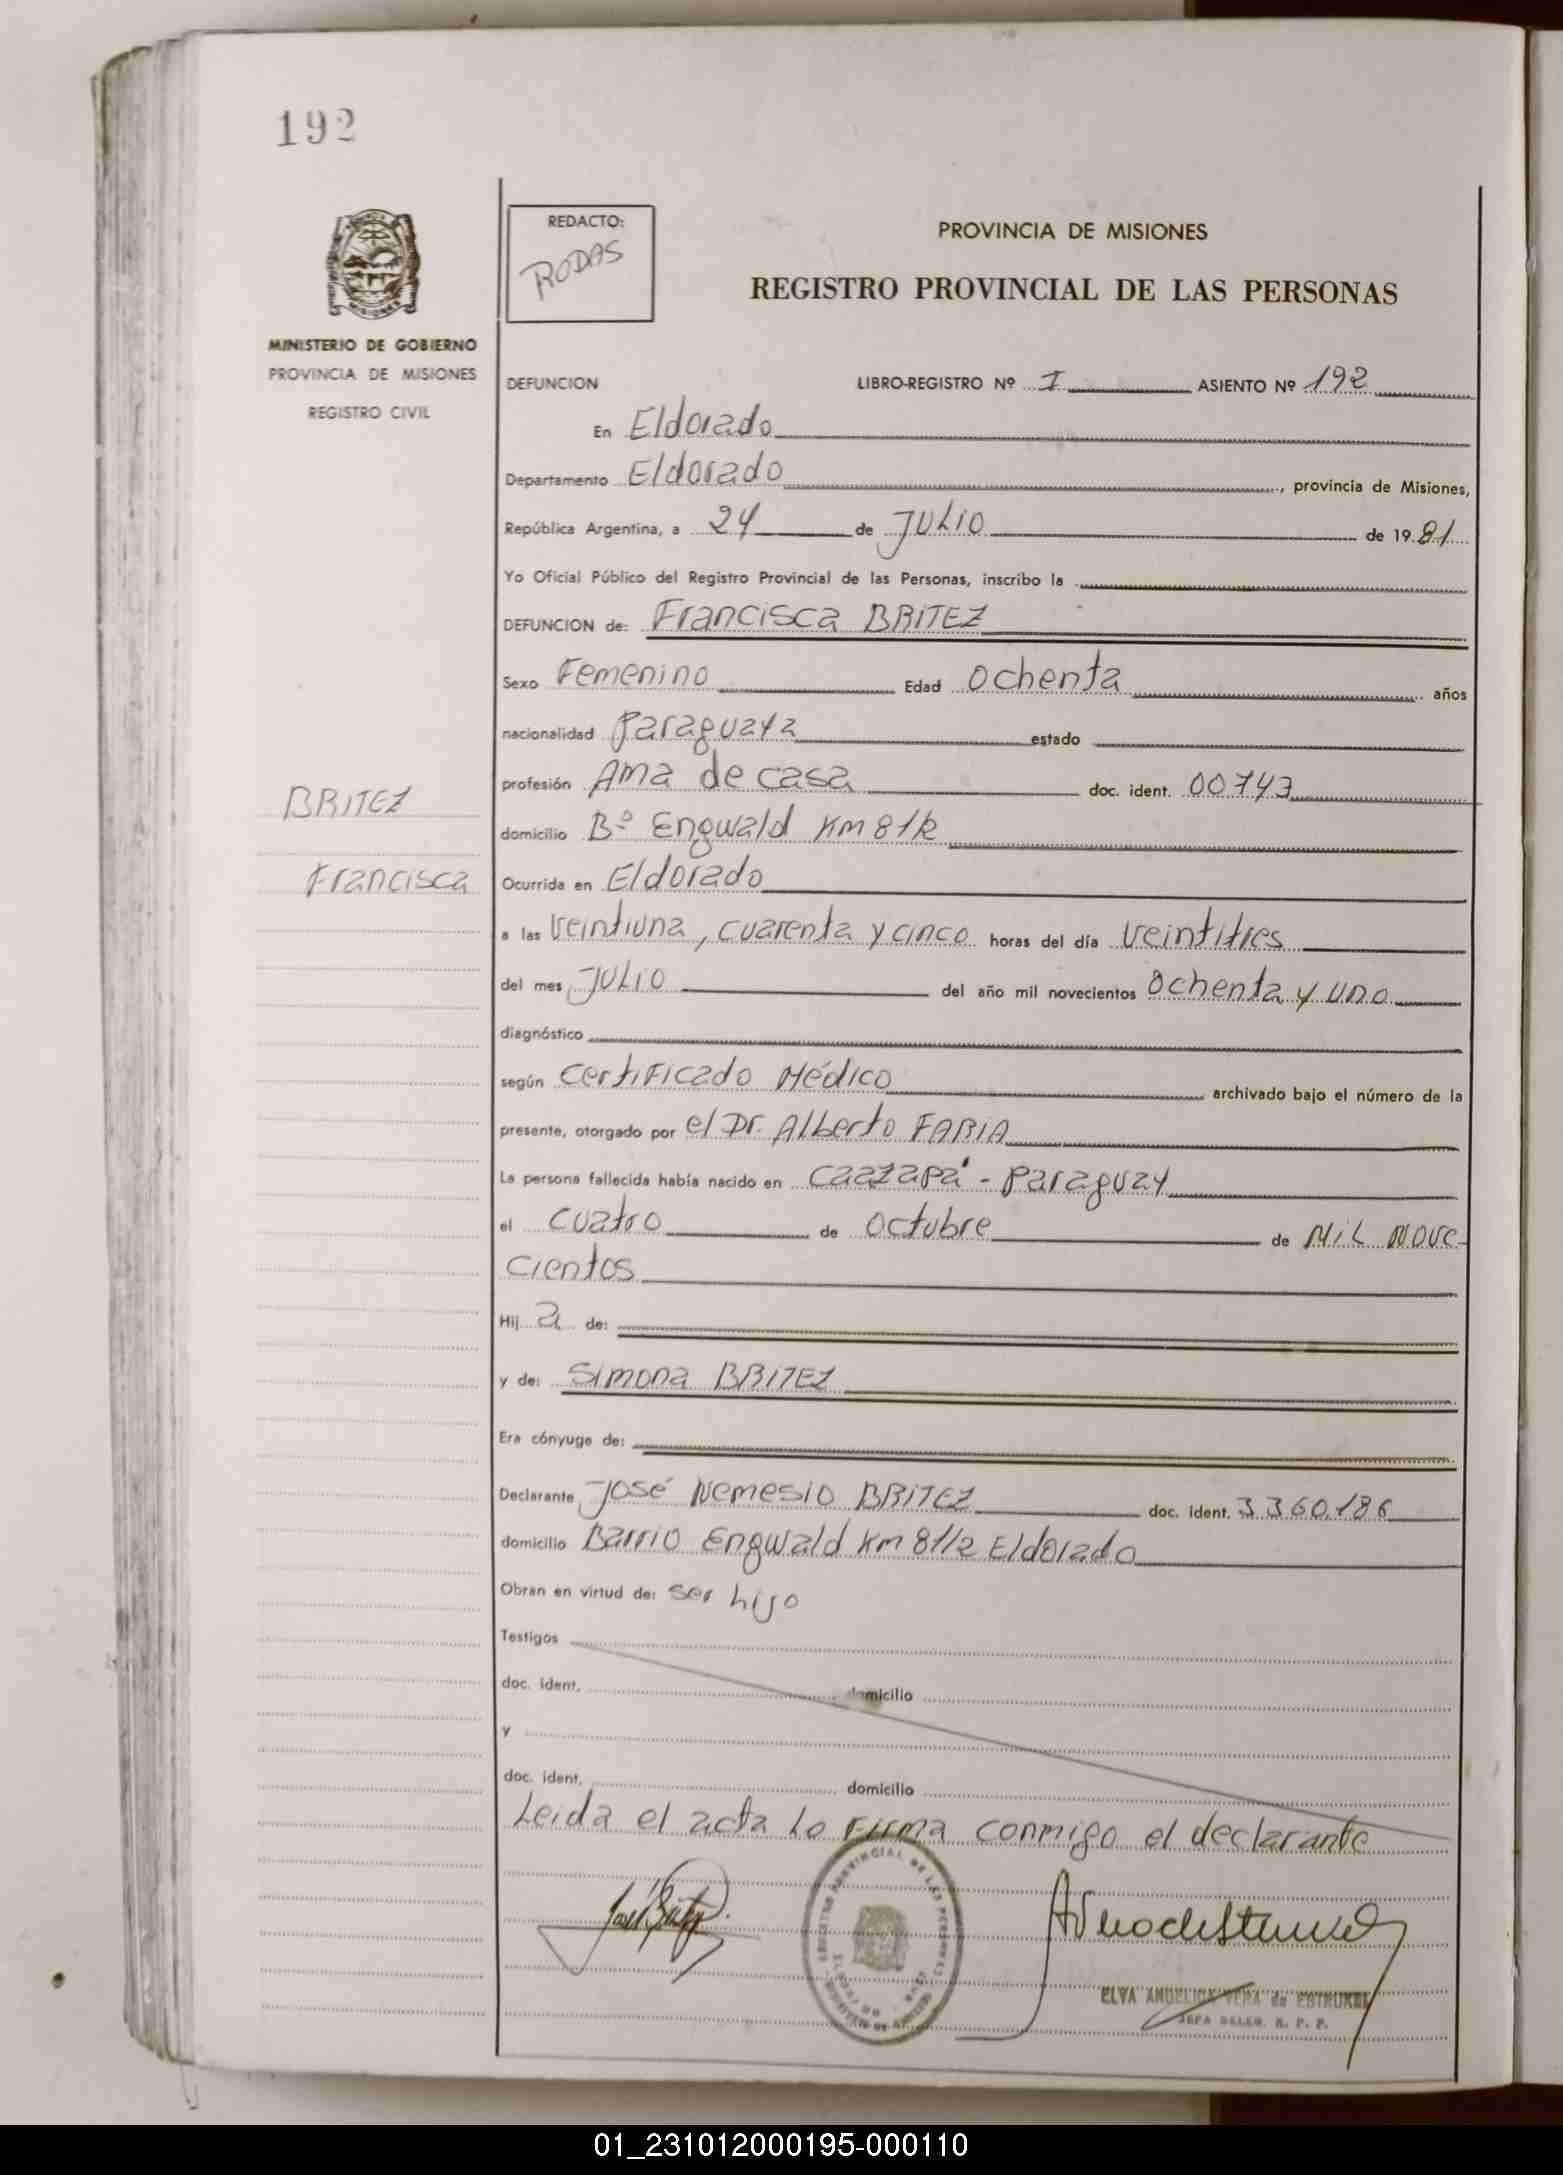 192
REDACTO:
RODAS
PROVINCIA DE MISIONES
REGISTRO PROVINCIAL DE LAS PERSONAS
MINISTERIO DE GOBIERNO
PROVINCIA DE MISIONES
REGISTRO CIVIL
DEFUNCION LIBRO-REGISTRO Nº I ASIENTO Nº 192
En Eldorado
Departamento Eldorado, provincia de Misiones,
República Argentina, a 24 de JULIO de 1981
Yo Oficial Público del Registro Provincial de las Personas, inscribo la
DEFUNCION de: Francisca BRITEZ
Sexo Femenino Edad Ochenta años
nacionalidad Paraguaya estado
profesión Ama de casa doc. ident. 00743
BRITEZ
domicilio Bº Engwald Km 8 1/2
Francisca
Ocurrida en Eldorado
a las veintiuna, cuarenta y cinco horas del día veintitres
del mes JULIO del año mil novecientos Ochenta y uno
diagnóstico
según Certificado Médico archivado bajo el número de la
presente, otorgado por el Dr. Alberto FARIA
La persona fallecida había nacido en Caazapá - Paraguay
el cuatro de Octubre de Mil Nove-
cientos
Hij a de:
y de: Simona BRITEZ
Era cónyuge de:
Declarante José Nemesio BRITEZ doc. ident. 3.360.186
domicilio Barrio Engwald Km 8 1/2 Eldorado
Obran en virtud de: ser hijo
Testigos
doc. ident. domicilio
y
doc. ident. domicilio
Leida el acta lo Firma conmigo el declarante
ELVA ANGELICA VERA de ESTRUKEL
JEFA DELEG. R. P. P.
01_231012000195-000110